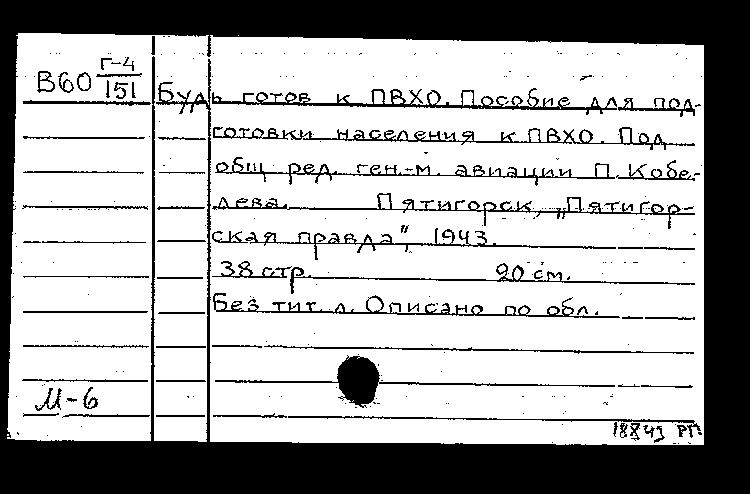 В60 Г-4/151
Будь готов к ПВХО. Пособие для под-
готовки населения к ПВХО. Под
общ ред. ген.-м. авиации П. Кобе-
лева. Пятигорск, „Пятигор-
ская правда", 1943.
38 стр. 20 см.
Без тит. л. Описано по обл.
М-6